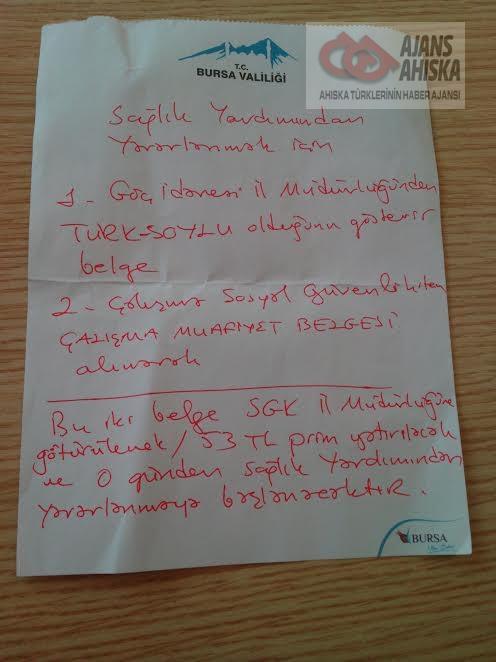 AJANS
AHISKA
AHISKA TÜRKLERİNİN HABER AJANSI
T.C.
BURSA VALİLİĞİ
Sağlık Yardımından
Yararlanmak için
1 - Göç idaresi il Müdürlüğünden
TÜRK-SOYLU olduğunu gösterir
belge
2 - Çalışma Sosyal Güvenlikten
ÇALIŞMA MUAFİYET BELGESİ
alınarak
Bu iki belge SGK il Müdürlüğüne
götürülerek / 53 TL prim yatırılacak
ve o günden Sağlık Yardımından
yararlanmaya başlanacaktır.
BURSA